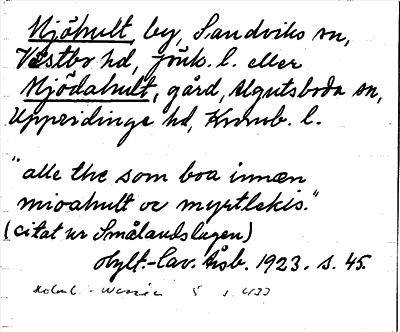 Mjöhult, by, Sandviks sn,
Västbo hd, Jönk. l. eller
Mjödahult, gård, Älgutsboda sn,
Uppvidinge hd, Kronob. l.
"alle the som boa innæn
mioahult oc myrtlekis."
(citat ur Smålandslagen)
Hylt.-Cav. Årsb. 1923. s. 45.
s. 433